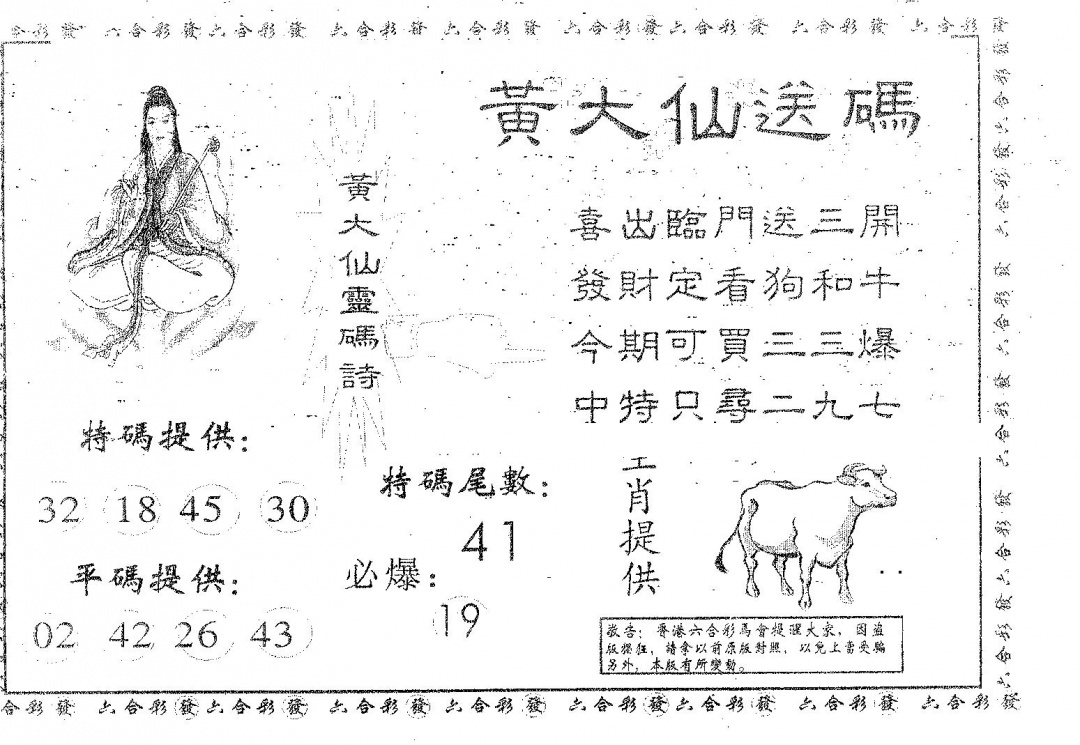 六合彩發 六合彩發 六合彩發 六合彩發 六合彩發 六合彩發 六合彩發 六合彩發
黃大仙送碼
黃大仙靈碼詩
喜出臨門送三開
發財定看狗和牛
今期可買二三爆
中特只尋二九七
特碼提供：
32 18 45 30
平碼提供：
02 42 26 43
特碼尾數：
41
必爆：
19
肖提供
敬告：香港六合彩馬會提醒大家，因盜
版猖狂，請拿以前原版對照，以免上當受騙
另外，本版有所變動。
合彩發 六合彩發 六合彩發 六合彩發 六合彩發 六合彩發 六合彩發 六合彩發 六合彩發